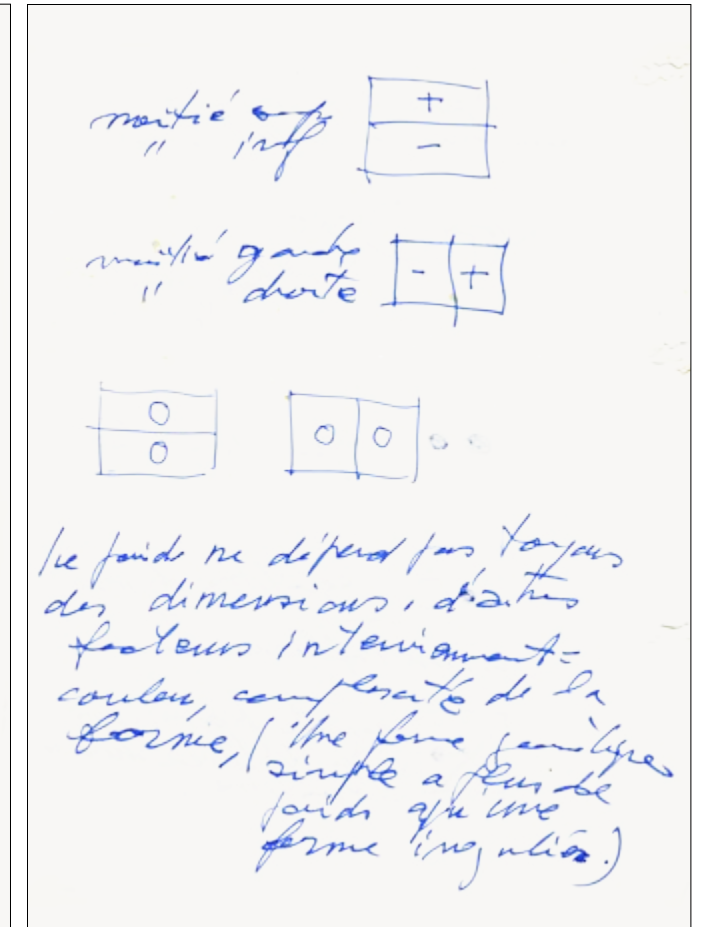 moitié sup +
" inf -
moitié gauche - +
" droite
Le poids ne dépend pas toujours
des dimensions, d'autres
facteurs interviennent =
couleur, complexité de la
forme, (Une forme géométrique
simple a plus de
poids qu'une
forme irrégulière.)